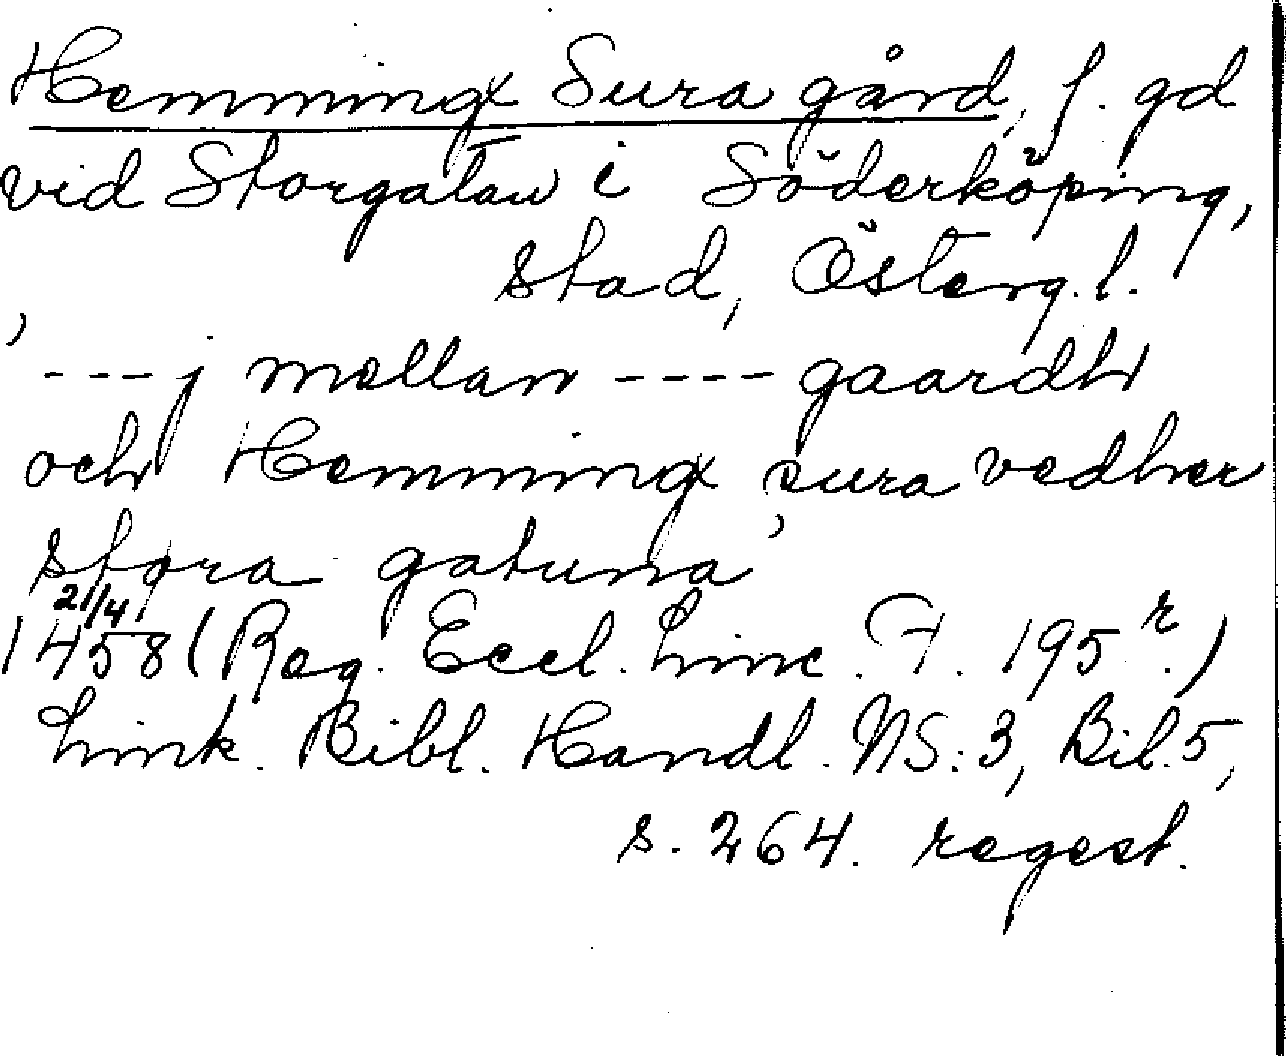 Hemmingx Sura gård, f. gd
vid Storgatan i Söderköping,
stad, Österg. l.
' - - - j mellan - - - - gaardh
och Hemmingx sura vedher
stora gatuna'
21/4 1458 (Reg. Eccl. Linc. F. 195 r.)
Link. Bibl. Handl. NS: 3, Bil. 5,
s. 264. regest.